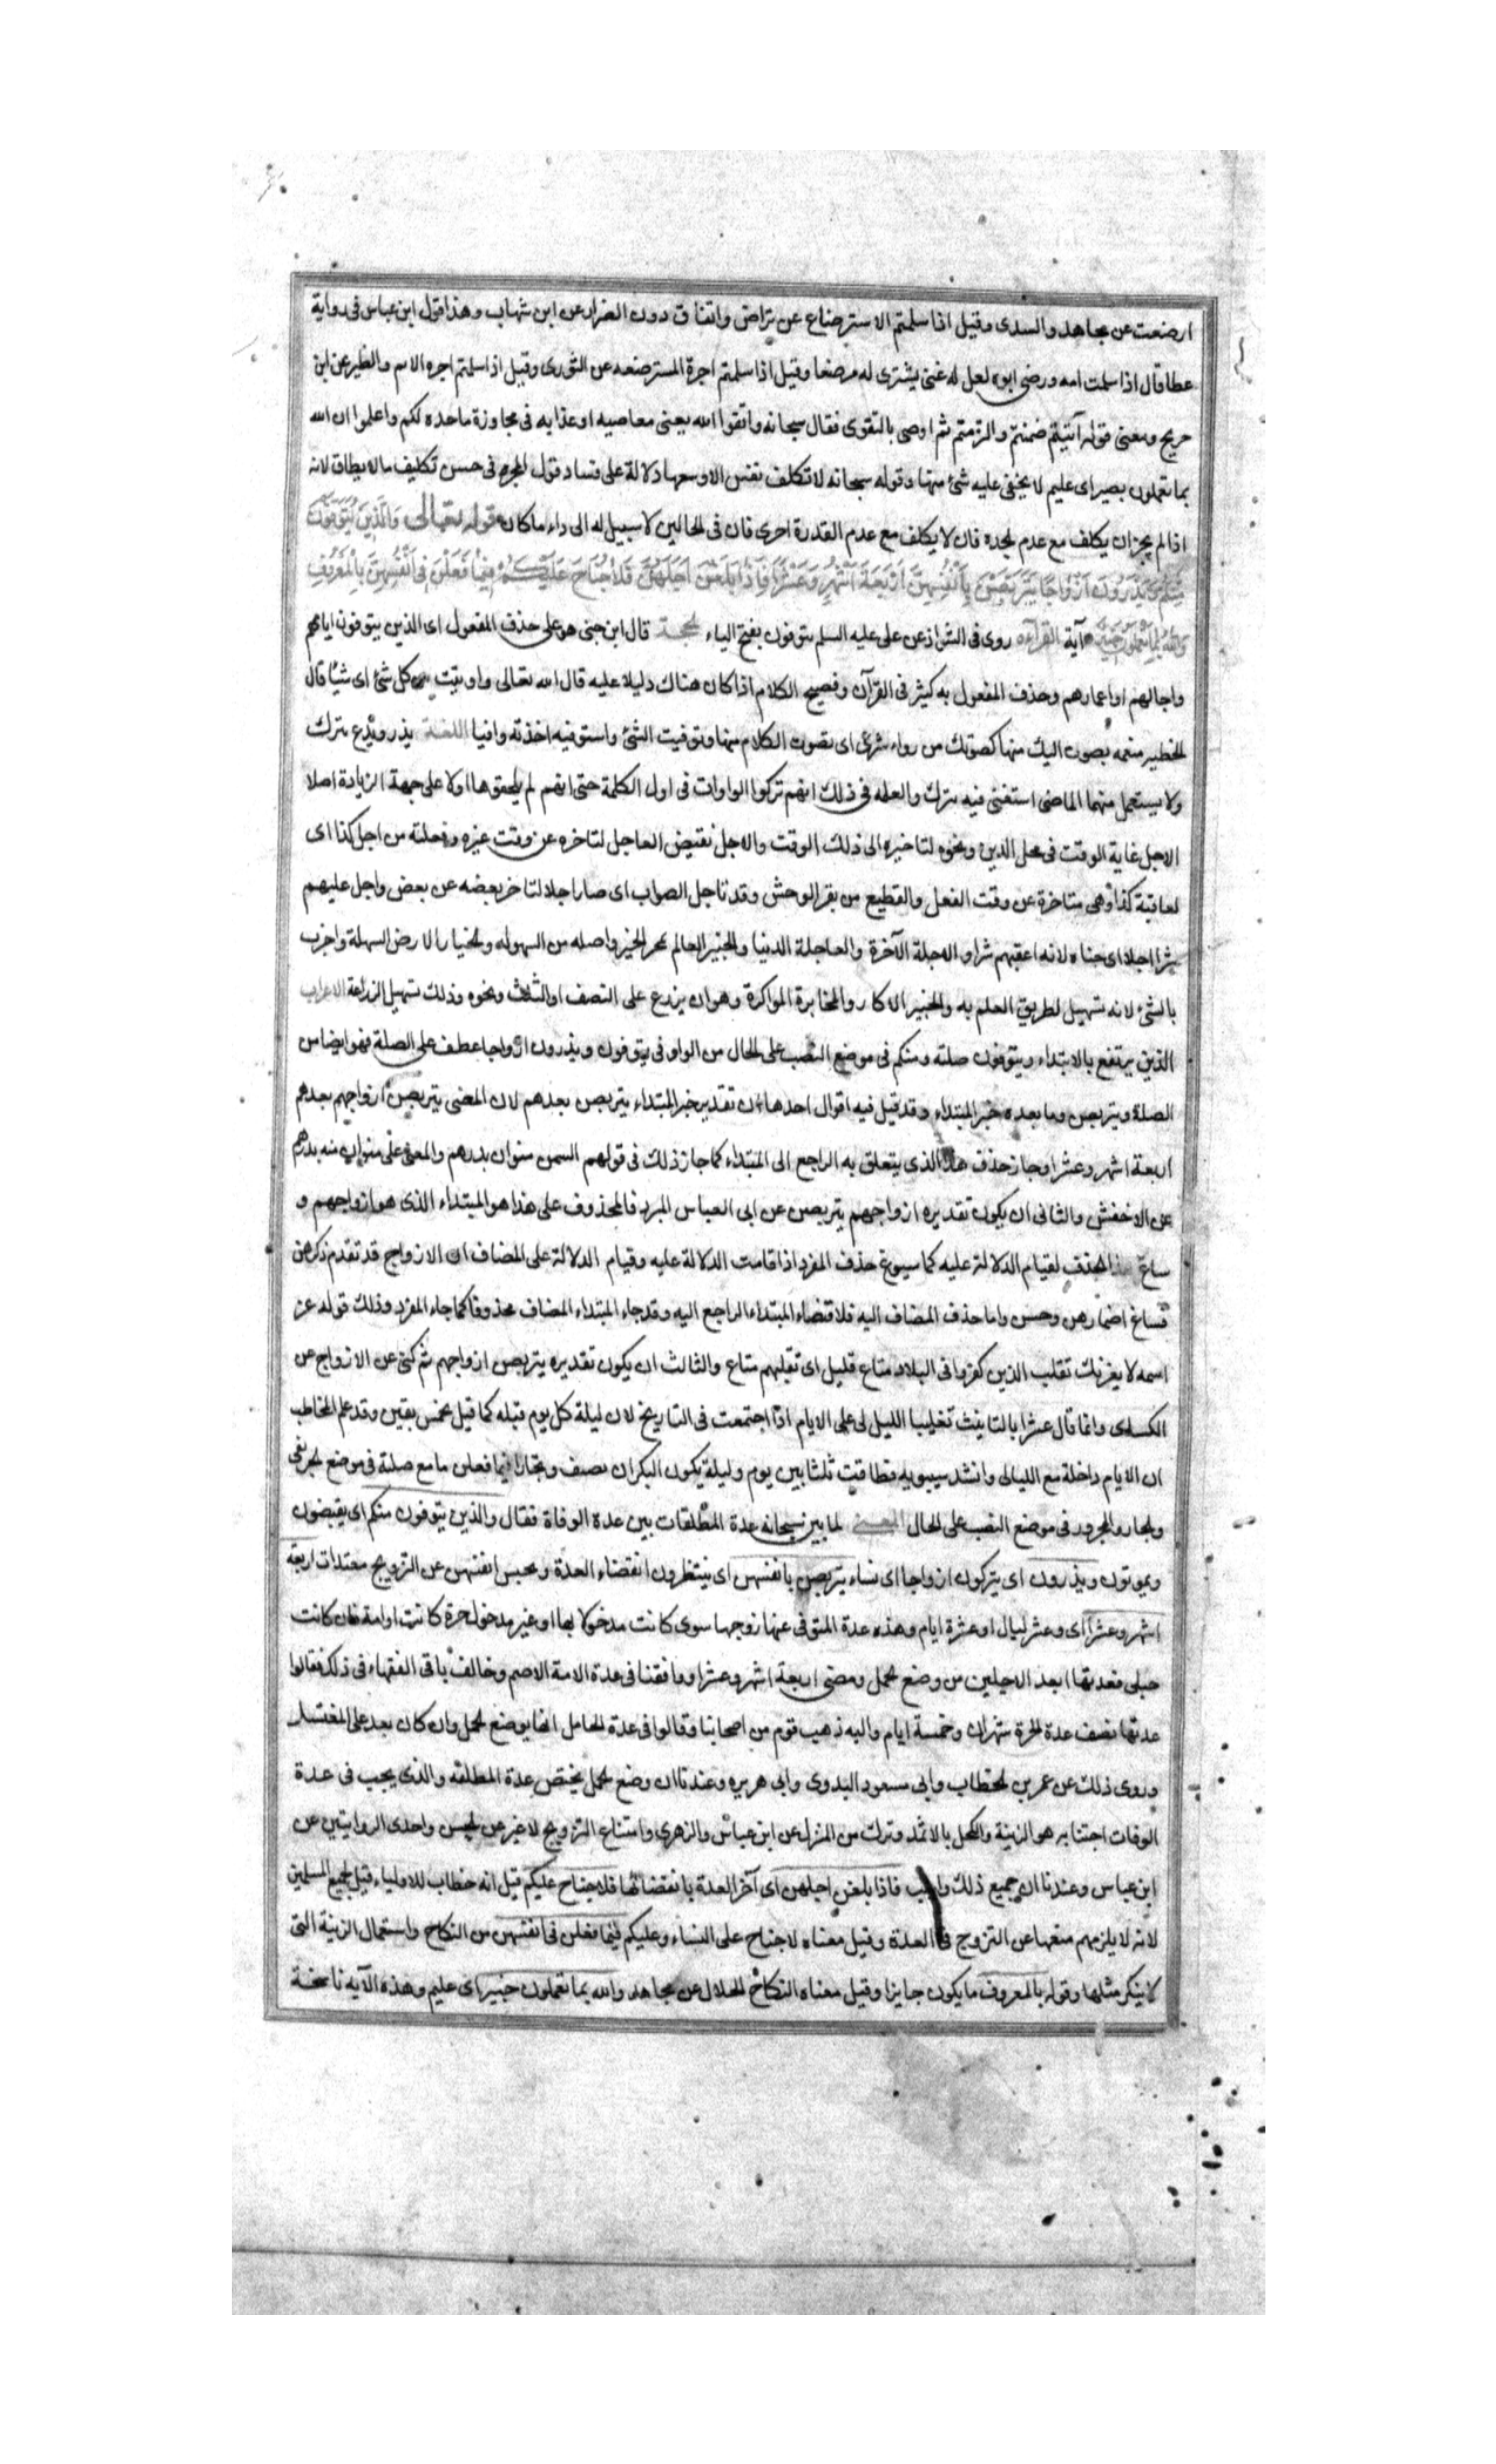 ارضعت عن مجاهد والسدى وقيل اذا سلمتم الاسترضاع عن تراض واتفاق دون الضرار عن ابن شهاب وهذا قول ابن عباس فى رواية
عطا قال اذا سلمت امه ورضى ابوه لعل له غنى يشترى له مرضعا وقيل اذا سلمتم اجرة المسترضعه عن الثورى وقيل اذا سلمتم اجره الام والظير عن ابن
جريج ومعنى قوله آتيتم ضمنتم والزمتم ثم اوصى بالتقوى فقال سبحانه واتقوا الله يعنى معاصيه او عذابه فى مجاوزة ما حده لكم واعلموا ان الله
بما تعملون بصير اى عليم لا يخفى عليه شئ منها وقوله سبحانه لا تكلف نفس الا وسعها دلالة على فساد قول المجبره فى حسن تكليف ما لا يطاق لانه
اذا لم يجز ان يكلف مع عدم الجده فان لا يكلف مع عدم القدرة احرى فان فى الحالين لا سبيل له الى اداء ما كان قوله تعالى وَالَّذِينَ يُتَوَفَّوْنَ
مِنْكُمْ وَيَذَرُونَ اَزْوَاجًا يَتَرَبَّصْنَ بِاَنْفُسِهِنَّ اَرْبَعَةَ اَشْهُرٍ وَعَشْرًا فَاِذَا بَلَغْنَ اَجَلَهُنَّ فَلَا جُنَاحَ عَلَيْكُمْ فِيمَا فَعَلْنَ فِى اَنْفُسِهِنَّ بِالْمَعْرُوفِ
وَاللهُ بِمَا تَعْمَلُونَ خَبِيرٌ آية القراءه روى فى الشواذ عن على عليه السلم يتوفون بفتح الياء الحجة قال ابن جنى هو على حذف المفعول اى الذين يتوفون ايامهم
واجالهم او اعمارهم وحذف المفعول به كثير فى القرآن وفصيح الكلام اذا كان هناك دليلا عليه قال الله تعالى واوتيت من كل شئ اى شيئا قال
الحطير منعمه يصون اليك منها كصوتك من رداء شرعى اى تصون الكلام منها وتوفيت الشئ واستوفيه اخذته وافيا اللغة يذر ويدع يترك
ولا يستعمل منهما الماضى استغنى فيه بترك والعله فى ذلك انهم تركوا الواوات فى اول الكلمة حتى انهم لم يلحقوها اولا على جهة الزيادة اصلا
الاجل غاية الوقت فى محل الدين ونحوه لتاخيره الى ذلك الوقت والاجل نقيض العاجل لتاخره عن وقت غيره وفعلته من اجل كذا اى
لعاقبة كذا وهى متاخرة عن وقت الفعل والقطيع من بقر الوحش وقد تاجل الصواب اى صار اجلا لتاخر بعضه عن بعض واجل عليهم
شرا اجلا اى جناه لانه اعقبهم شرا والاجلة الآخرة والعاجلة الدنيا والخبير العالم بمخر الخبر واصله من السهوله والخبار الارض السهلة واخبر
بالشئ لانه تسهيل لطريق العلم به والخبير الاكار والمخابرة المواكرة وهو ان يزرع على النصف او الثلث ونحوه وذلك تسهيل الزراعة الاعراب
الذين يرتفع بالابتداء ويتوفون صلته ومنكم فى موضع النصب على الحال من الواو فى يتوفون ويذرون ازواجا عطف على الصلة فهو ايضا من
الصلة ويتربصن وما بعده خبر المبتداء وقد قيل فيه اقوال احدها ان تقدير خبر المبتداء يتربصن بعدهم لان المعنى يتربصن ازواجهم بعدهم
اربعة اشهر وعشرا وجاز حذف هذا الذى يتعلق به الراجع الى المبتداء كما جاز ذلك فى قولهم السمن منوان بدرهم والمعنى على منوان منه بدرهم
عن الاخفش والثانى ان يكون تقديره ازواجهم يتربصن عن ابى العباس المبرد فالمحذوف على هذا هو المبتداء الذى هو ازواجهم و
ساغ هذا الحذف لقيام الدلالة عليه كما يسوغ حذف المفرد اذا قامت الدلالة عليه وقيام الدلالة على المضاف ان الازواج قد تقدم ذكرهن
فساغ اضمارهن وحسن واما حذف المضاف اليه فلاقتضاء المبتداء الراجع اليه وقد جاء المبتداء المضاف محذوفا كما جاء المفرد وذلك قوله عز
اسمه لا يغرنك تقلب الذين كفروا فى البلاد متاع قليل اى تقلبهم متاع والثالث ان يكون تقديره يتربصن ازواجهم ثم كنى عن الازواج عن
الكسائى وانما قال عشرا بالتانيث تغليبا الليالى على الايام اذا اجتمعت فى التاريخ لان ليلة كل يوم قبله كما قيل لخمس بقين وقد علم المخاطب
ان الايام داخلة مع الليالى وانشد سيبويه فطافت ثلثا بين يوم وليلة يكون النكران تصيف وتجارا فيما فعلن ما مع صلة فى موضع الجر بفى
والجار والمجرور فى موضع النصب على الحال المعنى لما بين سبحانه عدة المطلقات بين عدة الوفاة فقال والذين يتوفون منكم اى يقبضون
ويموتون ويذرون اى يتركون ازواجا اى نساء يتربصن بانفسهن اى ينتظرون انقضاء العدة ويحبس انفسهن عن التزويج معتدات اربعة
اشهر وعشرا اى وعشر ليال او عشرة ايام وهذه عدة المتوفى عنها زوجها سوى كانت مدخولا بها او غير مدخول حرة كانت او امة فان كانت
حبلى فعدتها ابعد الاجلين من وضع الحمل ومضى اربعة اشهر وعشرا ووافقنا فى عدة الامة الاصم وخالف باقى الفقهاء فى ذلك فقالوا
عدتها نصف عدة الحرة شهران وخمسة ايام واليه ذهب قوم من اصحابنا وقالوا فى عدة الحامل انها بوضع الحمل وان كان بعد على المغتسل
وروى ذلك عن عمر بن الخطاب وابى مسعود البدوى وابى هريره وعندنا ان وضع الحمل يختص بعدة المطلقه والذى يجب فى عدة
الوفات اجتنابه هو الزينة والكحل بالاثمد وترك من المنزل عن ابن عباس والزهرى وامتناع التزويج لا غير عن الحسن واحدى الروايتين عن
ابن عباس وعندنا ان جميع ذلك واجب فاذا بلغن اجلهن اى آخر العدة بانقضائها فلا جناح عليكم قيل انه خطاب للاولياء وقيل لجميع المسلمين
لانه لا يلزمهم منعها عن التزوج فى العدة وقيل معناه لا جناح على النساء وعليكم فيما فعلن فى انفسهن من النكاح واستعمال الزينة التى
لا ينكر مثلها وقوله بالمعروف ما يكون جايزا وقيل معناه النكاح الحلال عن مجاهد والله بما تعملون خبير اى عليم وهذه الآيه ناسخة